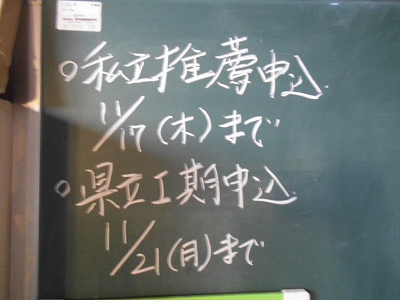 ○私立推薦申込
11/17(木)まで
○県立I期申込
11/21(月)まで